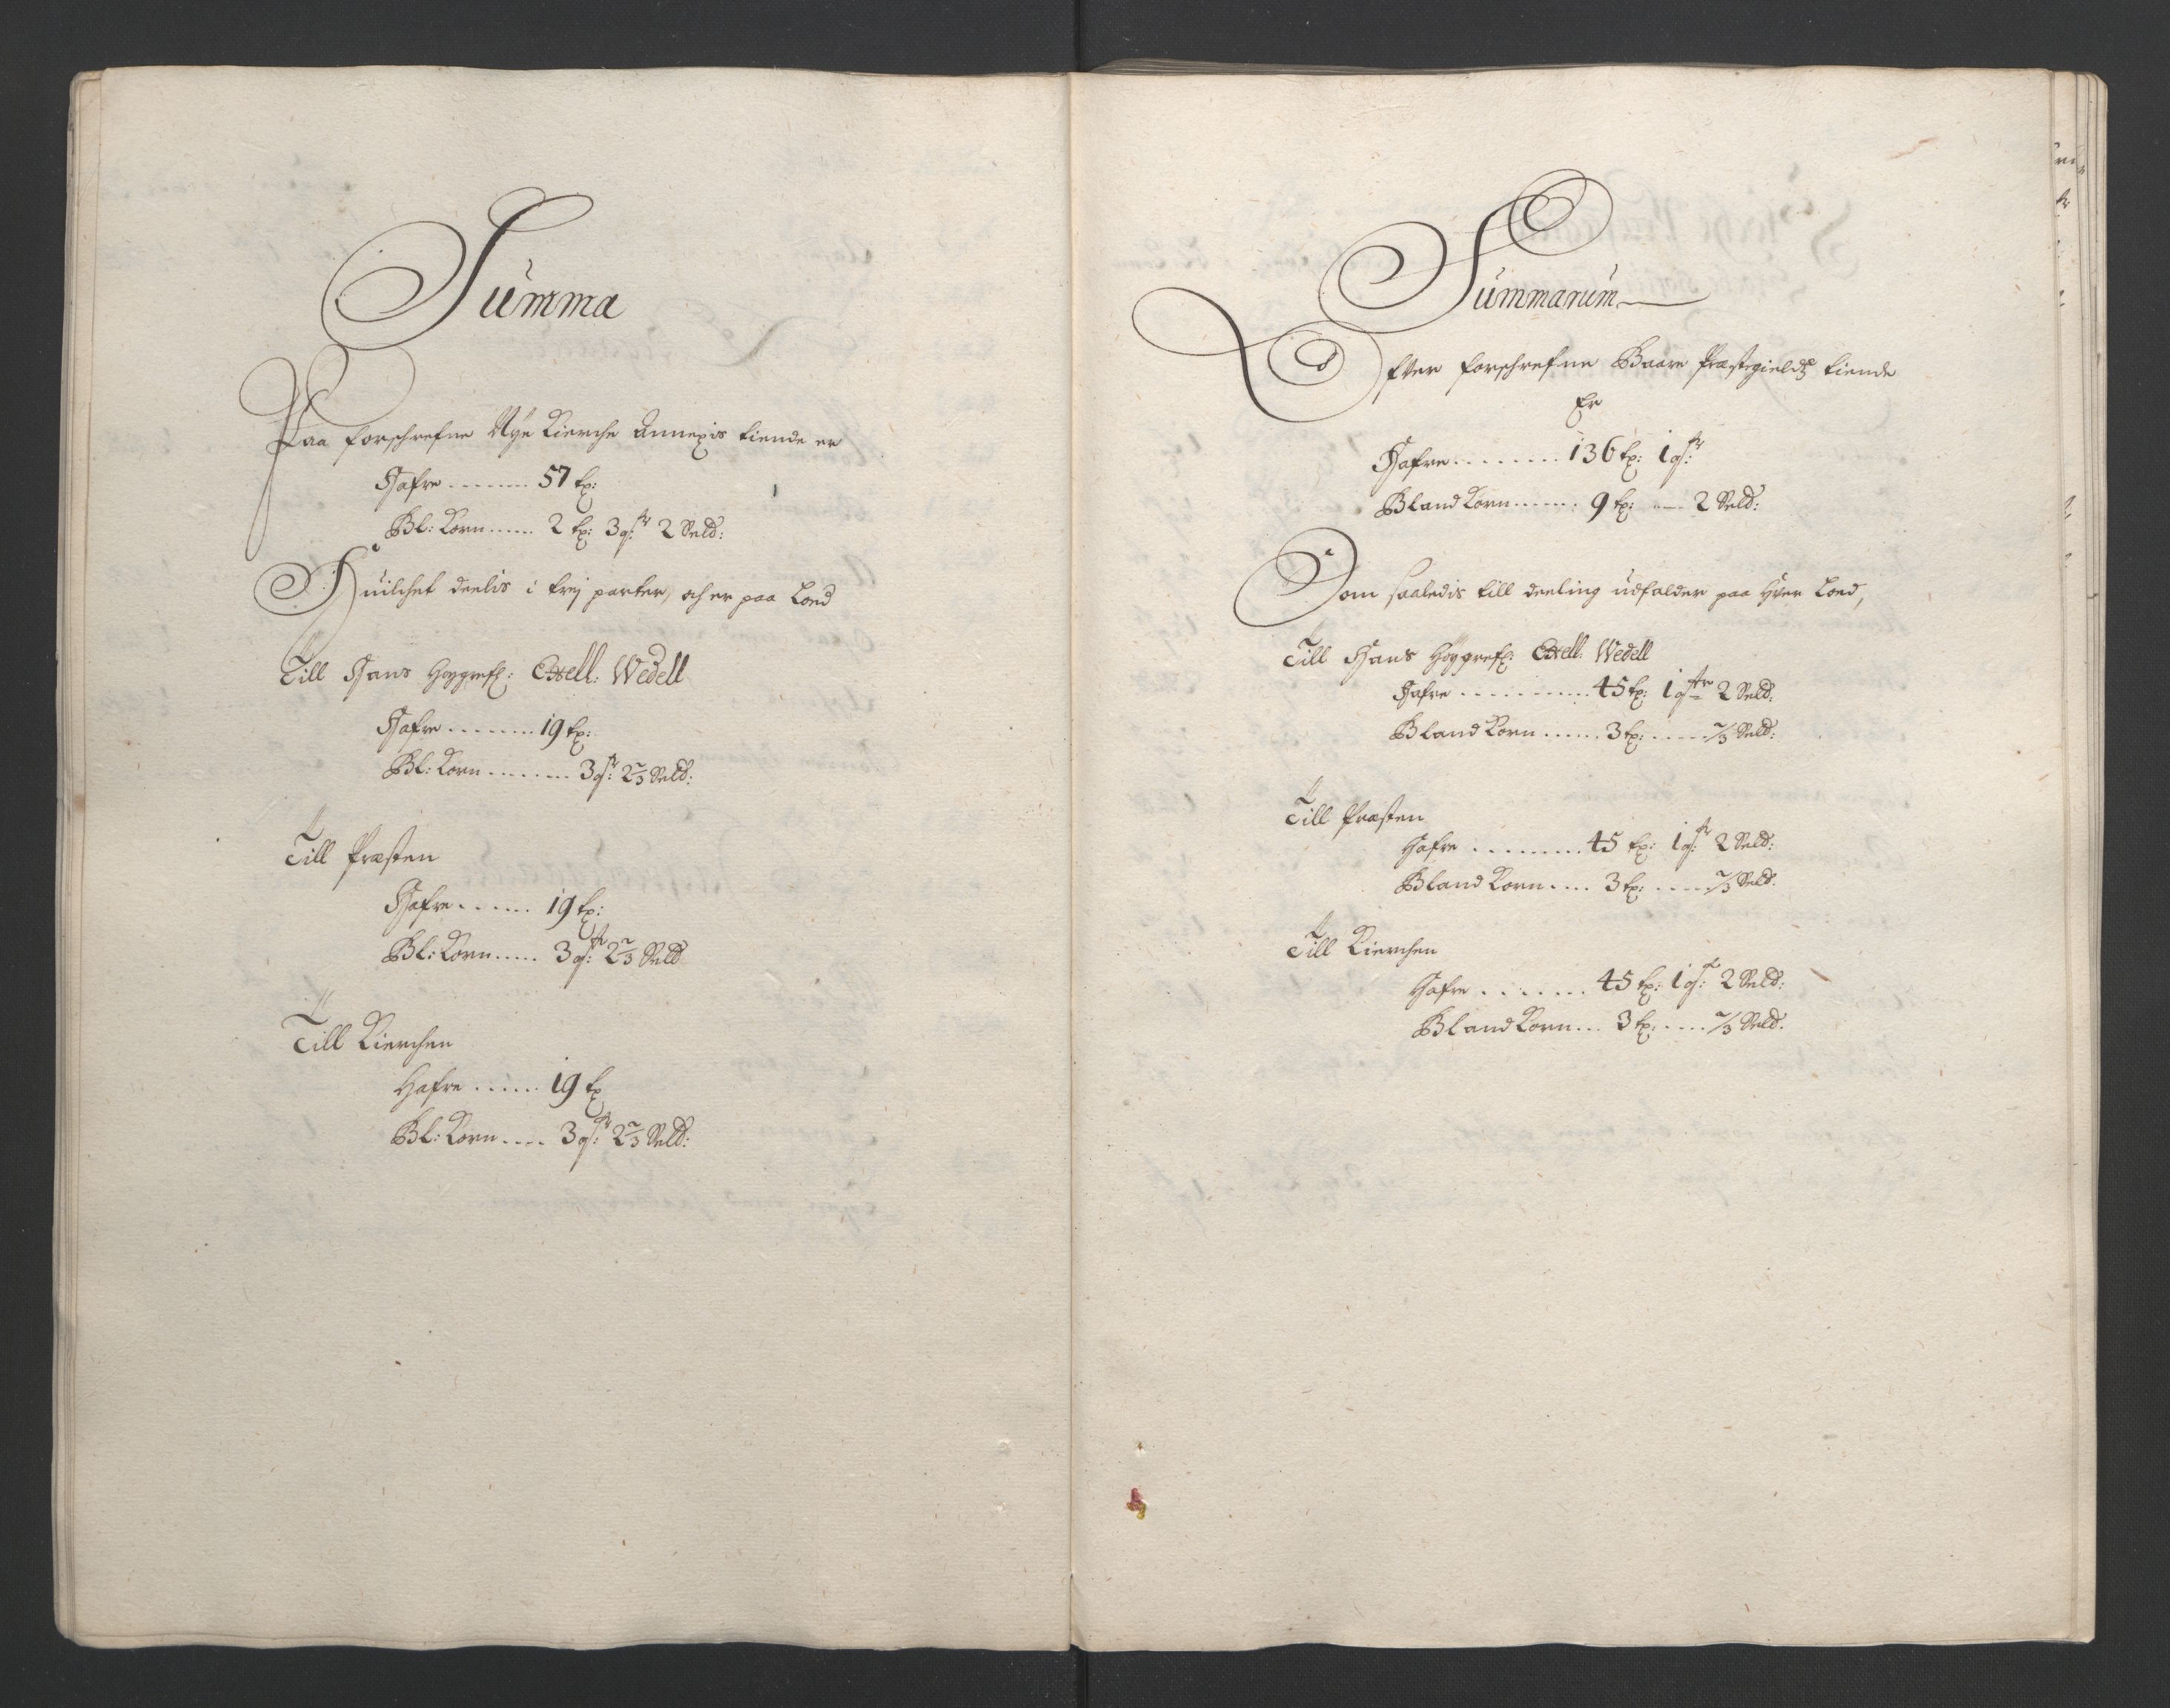 Summa
Paa forschrefne Nÿe Kierche Annexis tiende er
Hafre ........ 57 tp:
Bl: Korn ...... 2 tp: 3 qr: 2 Seld:
Huilchet deelis i trej parter, och er paa Loed
Till Hans Høygrefl: Excell: Wedell
Hafre ........ 19 tp:
Bl: Korn ........ 3 qr: 2 2/3 Seld:
Till Præsten
Hafre ...... 19 tp:
Bl: Korn ..... 3 qr: 2 2/3 Seld
Till Kierchen
Hafre ...... 19 tp
Bl: Korn .... 3 qr: 2 2/3 Seld:
Summarum
Efter forschrefne Baare Præstegieldz tiende
Er
Hafre ......... 136 tp: 1 qr:
Bland Korn ...... 9 tp: ---- 2 Seld:
Som saaledis till deeling udfalder paa Hver Loed,
Till Hans Høygrefl: Excell: Wedell
Hafre ........... 45 tp: 1 qtr 2 Seld:
Bland Korn ...... 3 tp: ..... 2/3 Seld:
Till Præsten
Hafre ......... 45 tp: 1 qr: 2 Seld:
Bland Korn .... 3 tp: ..... 2/3 Seld.
Till Kierchen
Hafre ...... 45 tp: 1 qr: 2 Seld:
Bland Korn ... 3 tp: .... 2/3 Seld.